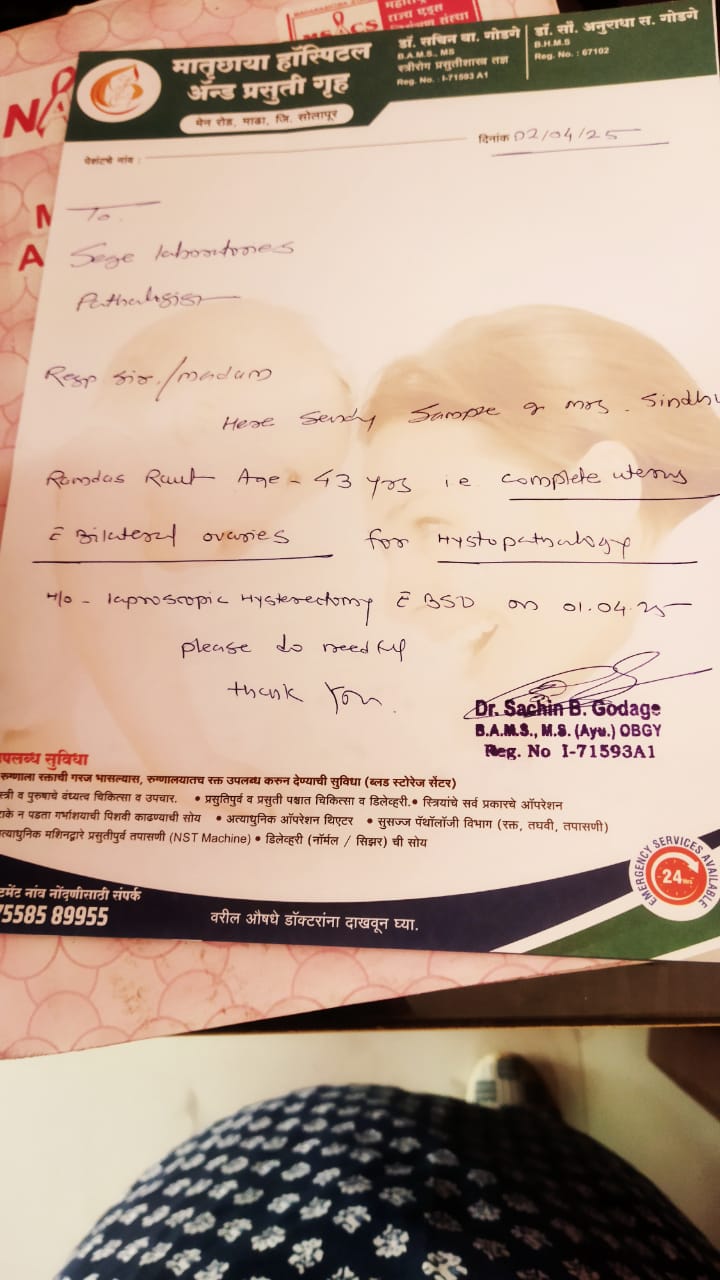 MSACS
राज्य एड्स
संस्था
मातृछाया हॉस्पिटल
ॲन्ड प्रसुती गृह
मेन रोड, माढा, जि. सोलापूर
डॉ. सचिन बा. गोडगे
B.A.M.S., MS
स्त्रीरोग प्रसुतीशास्त्र तज्ञ
Reg. No. : I-71593 A1
डॉ. सौ. अनुराधा स. गोडगे
B.H.M.S
Reg. No. : 67102
पेशंटचे नांव :
दिनांक 02/04/25
To.
Sege laboratories
Pathologist
Resp sir./madam
Here Sendy Sample of mrs. Sindhu
Ramdas Raut Age - 43 yrs i.e. complete uterus
c̄ Bilateral ovaries for Hystopathology
H/o - laproscopic Hysterectomy c̄ BSO on 01.04.25
please do needful
thank You.
Dr. Sachin B. Godage
B.A.M.S., M.S. (Ayu.) OBGY
Reg. No I-71593A1
पलब्ध सुविधा
रुग्णाला रक्ताची गरज भासल्यास, रुग्णालयातच रक्त उपलब्ध करुन देण्याची सुविधा (ब्लड स्टोरेज सेंटर)
स्त्री व पुरुषाचे वंध्यत्व चिकित्सा व उपचार. • प्रसुतिपुर्व व प्रसुती पश्चात चिकित्सा व डिलेव्हरी. • स्त्रियांचे सर्व प्रकारचे ऑपरेशन
टाके न पडता गर्भाशयाची पिशवी काढण्याची सोय • अत्याधुनिक ऑपरेशन थिएटर • सुसज्ज पॅथॉलॉजी विभाग (रक्त, तघवी, तपासणी)
त्याधुनिक मशिनद्वारे प्रसुतीपुर्व तपासणी (NST Machine) • डिलेव्हरी (नॉर्मल / सिझर) ची सोय
EMERGENCY SERVICES AVAILABLE
24 Hrs
टमेंट नांव नोंदणीसाठी संपर्क
75585 89955
वरील औषधे डॉक्टरांना दाखवून घ्या.